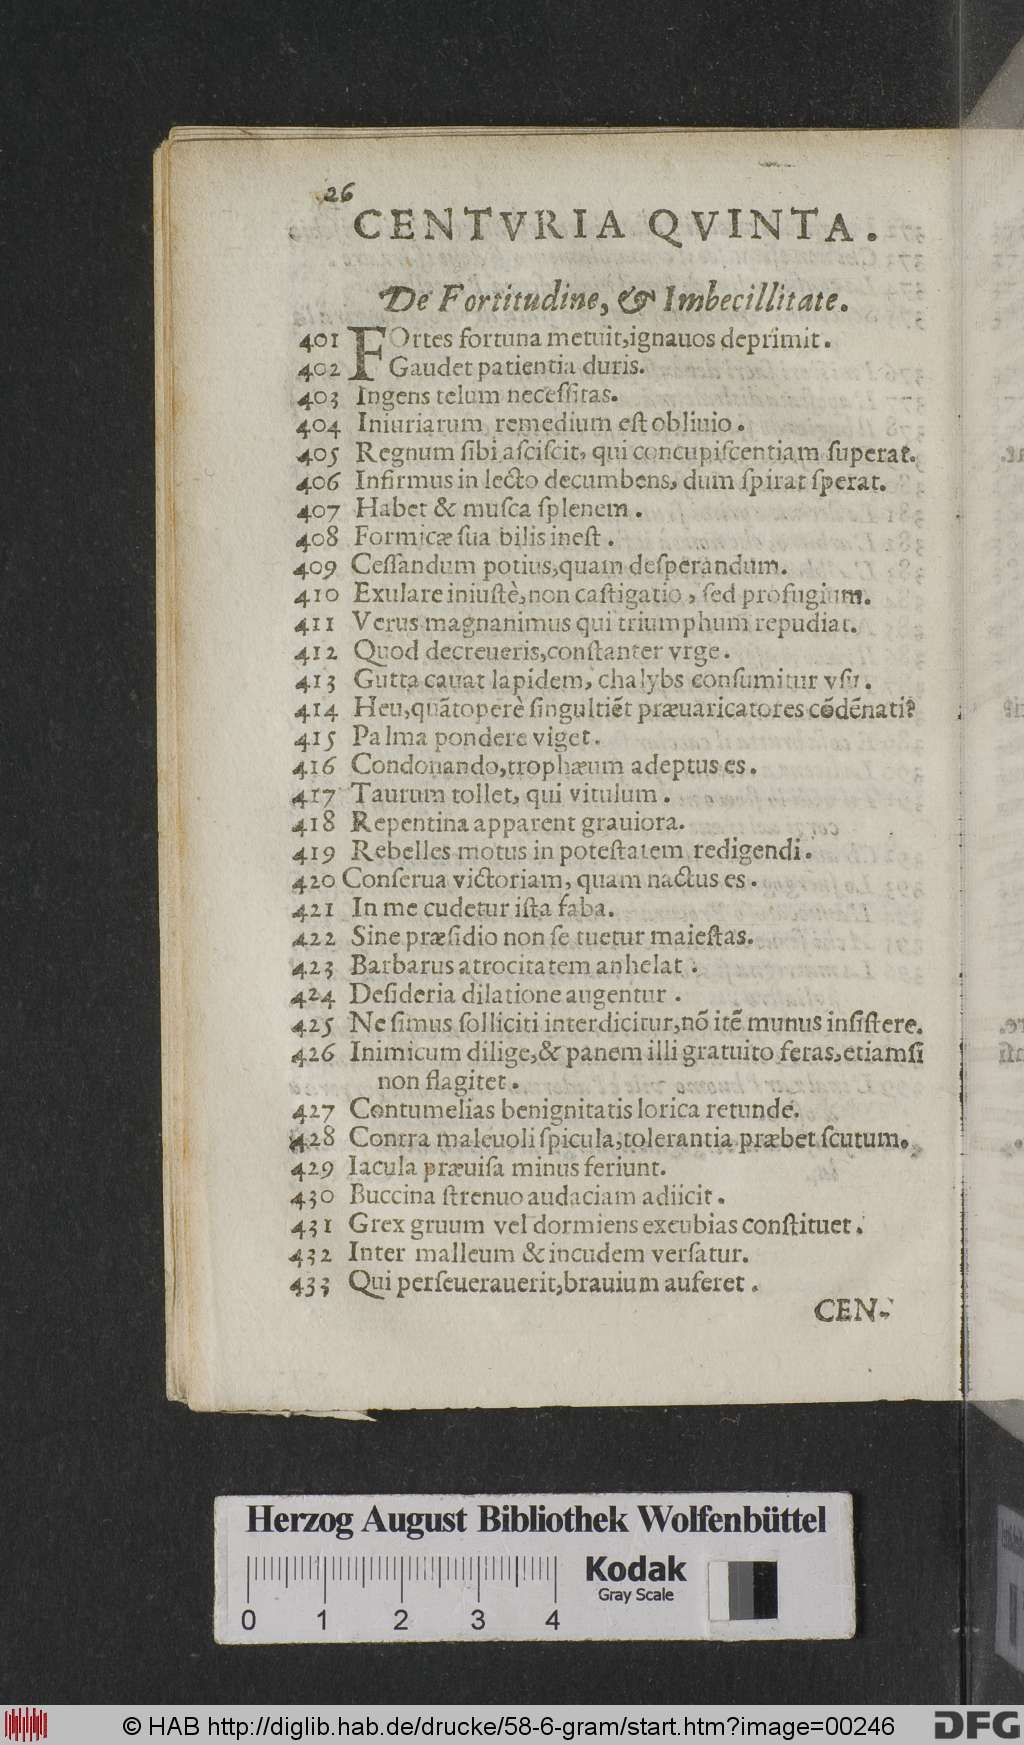 26
CENTVRIA QVINTA.
De Fortitudine, & Imbecillitate.
401 FOrtes fortuna metuit, ignauos deprimit.
402 Gaudet patientia duris.
403 Ingens telum neceſſitas.
404 Iniuriarum remedium eſt obliuio.
405 Regnum ſibi aſciſcit, qui concupiſcentiam ſuperat.
406 Infirmus in lecto decumbens, dum ſpirat ſperat.
407 Habet & muſca ſplenem.
408 Formicæ ſua bilis ineſt.
409 Ceſſandum potius, quam deſperandum.
410 Exulare iniuſtè, non caſtigatio, ſed profugium.
411 Verus magnanimus qui triumphum repudiat.
412 Quod decreueris, conſtanter vrge.
413 Gutta cauat lapidem, chalybs conſumitur vſu.
414 Heu, quātoperè ſingultiēt præuaricatores cōdēnati?
415 Palma pondere viget.
416 Condonando, trophæum adeptus es.
417 Taurum tollet, qui vitulum.
418 Repentina apparent grauiora.
419 Rebelles motus in poteſtatem redigendi.
420 Conſerua victoriam, quam nactus es.
421 In me cudetur iſta faba.
422 Sine præſidio non ſe tuetur maieſtas.
423 Barbarus atrocitatem anhelat.
424 Deſideria dilatione augentur.
425 Ne ſimus ſolliciti interdicitur, nō itē munus inſiſtere.
426 Inimicum dilige, & panem illi gratuito feras, etiamſi
non flagitet.
427 Contumelias benignitatis lorica retunde.
428 Contra maleuoli ſpicula, tolerantia præbet ſcutum.
429 Iacula præuiſa minus feriunt.
430 Buccina ſtrenuo audaciam adiicit.
431 Grex gruum vel dormiens excubias conſtituet.
432 Inter malleum & incudem verſatur.
433 Qui perſeuerauerit, brauium auferet.
CEN-
Herzog August Bibliothek Wolfenbüttel
Kodak
Gray Scale
0 1 2 3 4
© HAB http://diglib.hab.de/drucke/58-6-gram/start.htm?image=00246
DFG